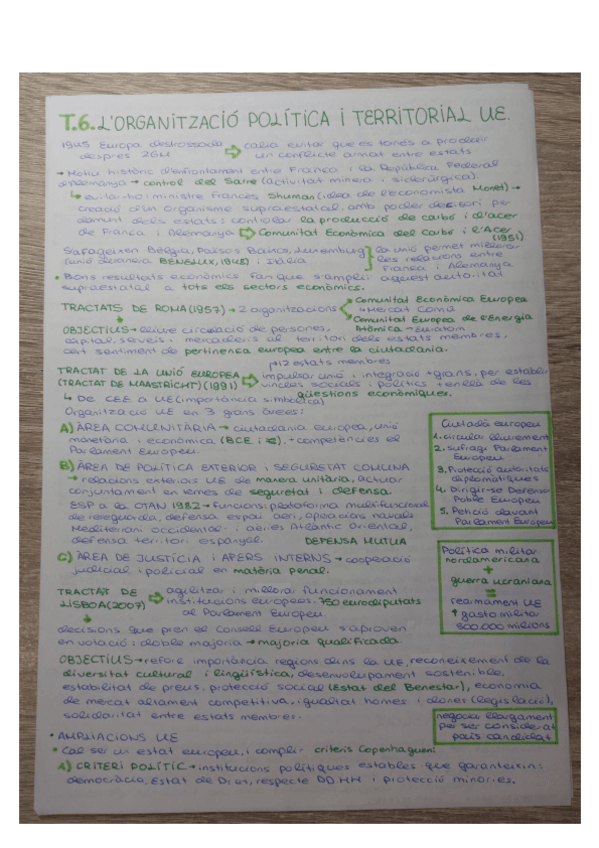 T.6. L'ORGANITZACIÓ POLÍTICA I TERRITORIAL UE.
1945 Europa destrossada ⇨ calia evitar que es tornés a produir
després 2GM un conflicte armat entre estats
→ Motiu històric d'enfrontament entre França i la República Federal
d'Alemanya → control del Sarre (activitat minera i siderúrgica).
↳ evitar-ho: ministre francès Shuman (idea de l'economista Monet) →
creació d'un organisme supraestatal amb poder decisori per
damunt dels estats: controlar la producció de carbó i d'acer
de França i Alemanya ⇨ Comunitat Econòmica del Carbó i l'Acer
(1951)
S'afageixen Bèlgica, Països Baixos, Luxemburg } la unió permet millorar
(unió duanera BENELUX, 1948) i Itàlia les relacions entre
França i Alemanya
• Bons resultats econòmics fan que s'ampliï aquest autoritat
supraestatal a tots els sectors econòmics.
TRACTATS DE ROMA (1957) → 2 organitzacions
Comunitat Econòmica Europea
↳ Mercat Comú
Comunitat Europea de l'Energia
Atòmica → Euratom
OBJECTIUS → lliure circulació de persones,
capital, serveis i mercaderies al territori dels estats membres,
cert sentiment de pertinença europea entre la ciutadania.
12 estats membres
TRACTAT DE LA UNIÓ EUROPEA ⇨ impulsar unió i integració + grans, per establir
(TRACTAT DE MAASTRICHT) (1991) vincles socials i polítics + enllà de les
qüestions econòmiques.
↳ De CEE a UE (importància simbòlica)
Organització UE en 3 grans àrees:
A) ÀREA COMUNITÀRIA → ciutadania europea, unió
monetària i econòmica (BCE i €). + competències el
Parlament Europeu.
B) ÀREA DE POLÍTICA EXTERIOR I SEGURETAT COMUNA
→ relacions exteriors UE de manera unitària, actuar
conjuntament en temes de seguretat i defensa.
ESP a la OTAN 1982 → Funcions: plataforma multifuncional
de reeguarda, defensa espai aeri, operacions navals
Mediterrani occidental i aèries Atlàntic Oriental,
defensa territori espanyol. DEFENSA MUTUA
C) ÀREA DE JUSTÍCIA I AFERS INTERNS → cooperació
judicial i policial en matèria penal.
Ciutadà europeu
1. Circular lliurement
2. Sufragi Parlament
Europeu
3. Protecció autoritats
diplomàtiques
4. Dirigir-se Defensor
Poble Europeu
5. Petició davant
Parlament Europeu
Política militar
nordamericana
+
guerra ucraniana
=
rearmament UE
↑ gasto militar
800.000 milions
TRACTAT DE ⇨ agilitzar i millorar funcionament
LISBOA (2007) institucions europees. 750 eurodiputats
al Parlament Europeu.
decisions que pren el Consell Europeu s'aproven
en votació i doble majoria → majoria qualificada.
OBJECTIUS → reforç importància regions dins la UE, reconeixement de la
diversitat cultural i lingüística, desenvolupament sostenible,
estabilitat de preus, protecció social (Estat del Benestar), economia
de mercat altament competitiva, igualtat homes i dones (legislació),
solidaritat entre estats membres.
negociar llargament
per ser considerat
país candidat
• AMPLIACIONS UE
• Cal ser un estat europeu, i complir criteris Copenhaguen:
A) CRITERI POLÍTIC → institucions polítiques estables que garanteixin:
democràcia, Estat de Dret, respecte DDHH i protecció minories.